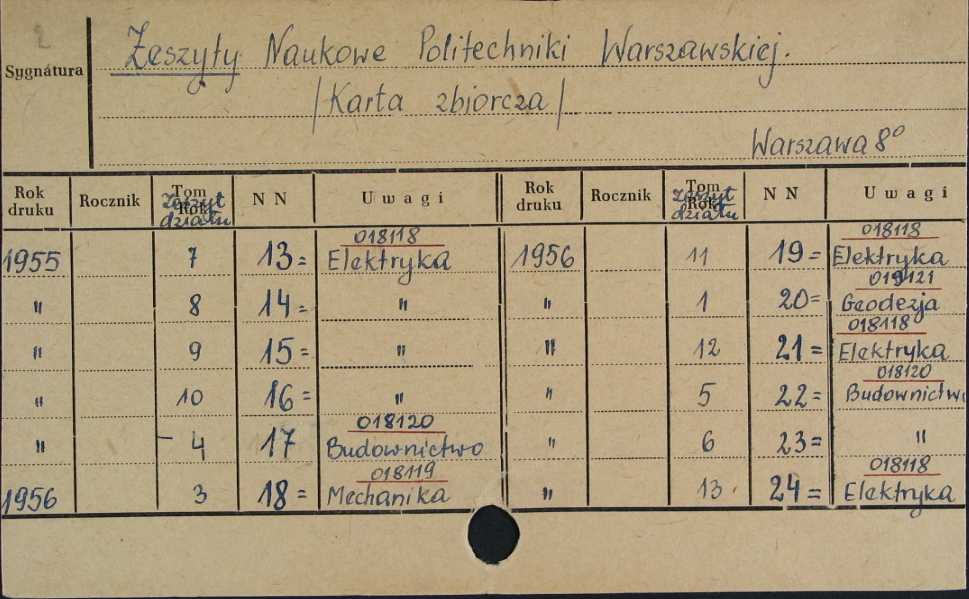 2
Sygnatura
Zeszyty Naukowe Politechniki Warszawskiej.
/Karta zbiorcza/
Warszawa 8°
Rok druku Rocznik Tom Rok Zeszyt działu N N Uwagi Rok druku Rocznik Tom Rok Zeszyt działu N N Uwagi
018118 018118
1955 7 13= Elektryka 1956 11 19= Elektryka
019121
" 8 14= " " 1 20= Geodezja
018118
" 9 15= " " 12 21= Elektryka
018120
" 10 16= " " 5 22= Budownictwo
018120
" - 4 17 Budownictwo " 6 23= "
018119 018118
1956 3 18= Mechanika " 13. 24= Elektryka